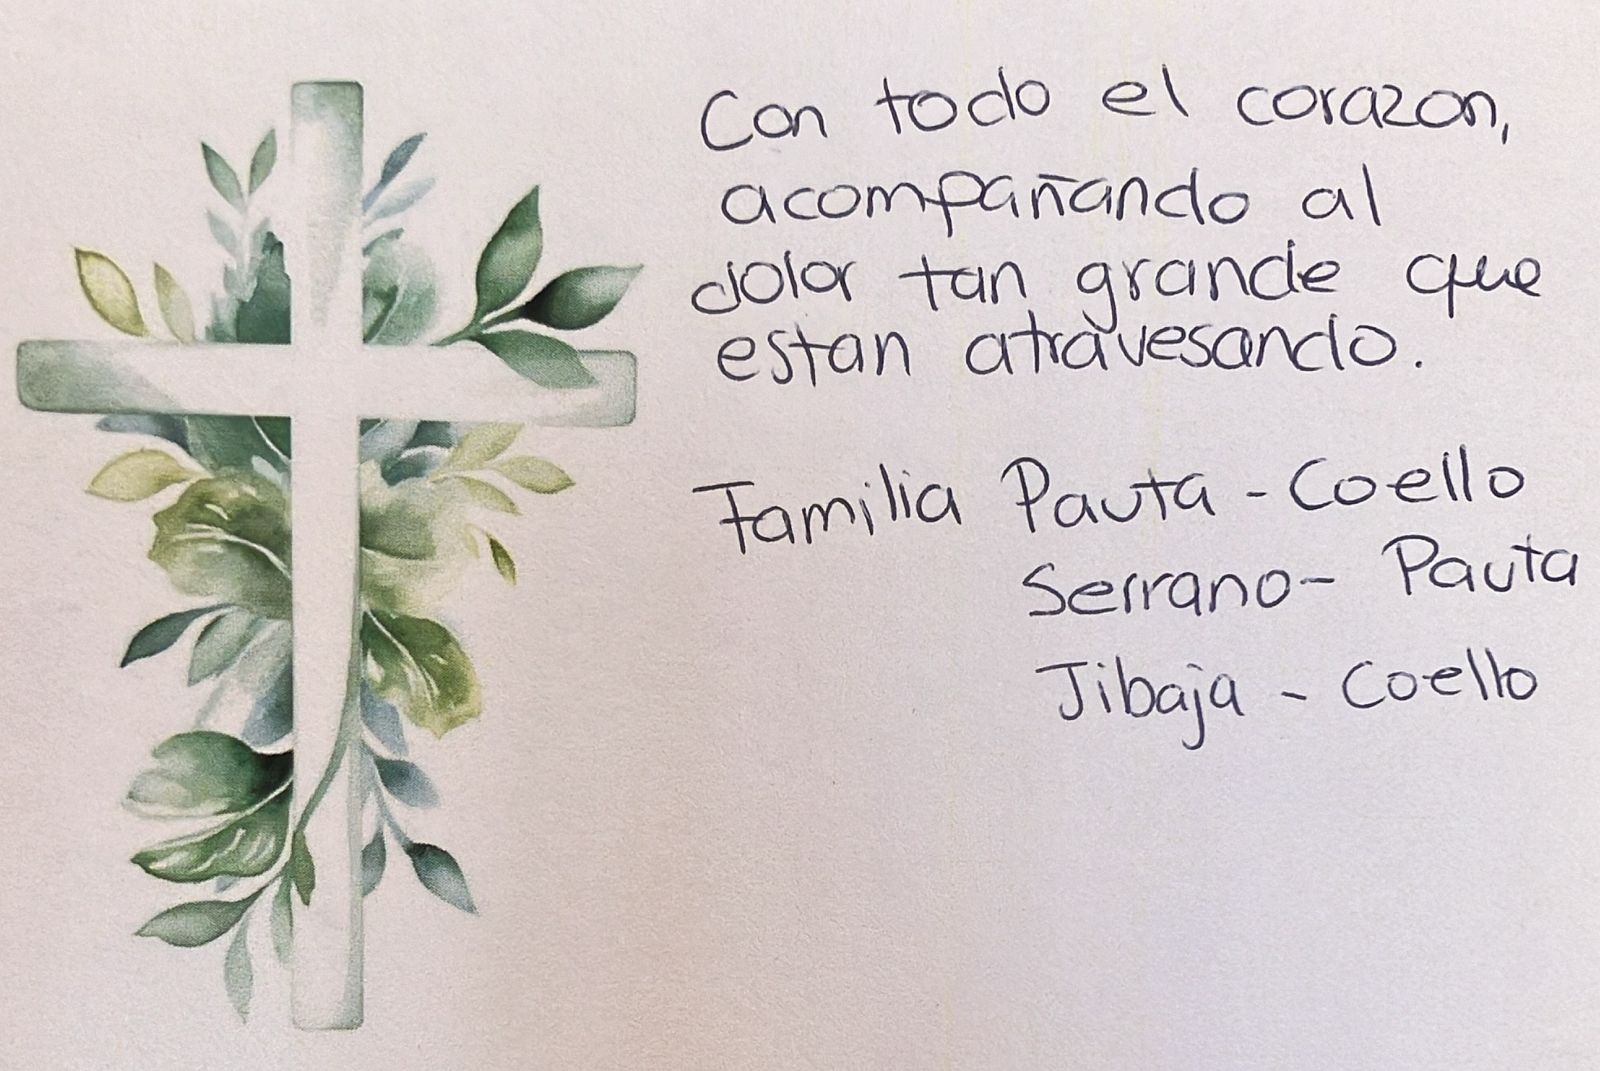 Con todo el corazon,
acompañando al
dolor tan grande que
estan atravesando.
Familia Pauta - Coello
Serrano - Pauta
Jibaja - Coello